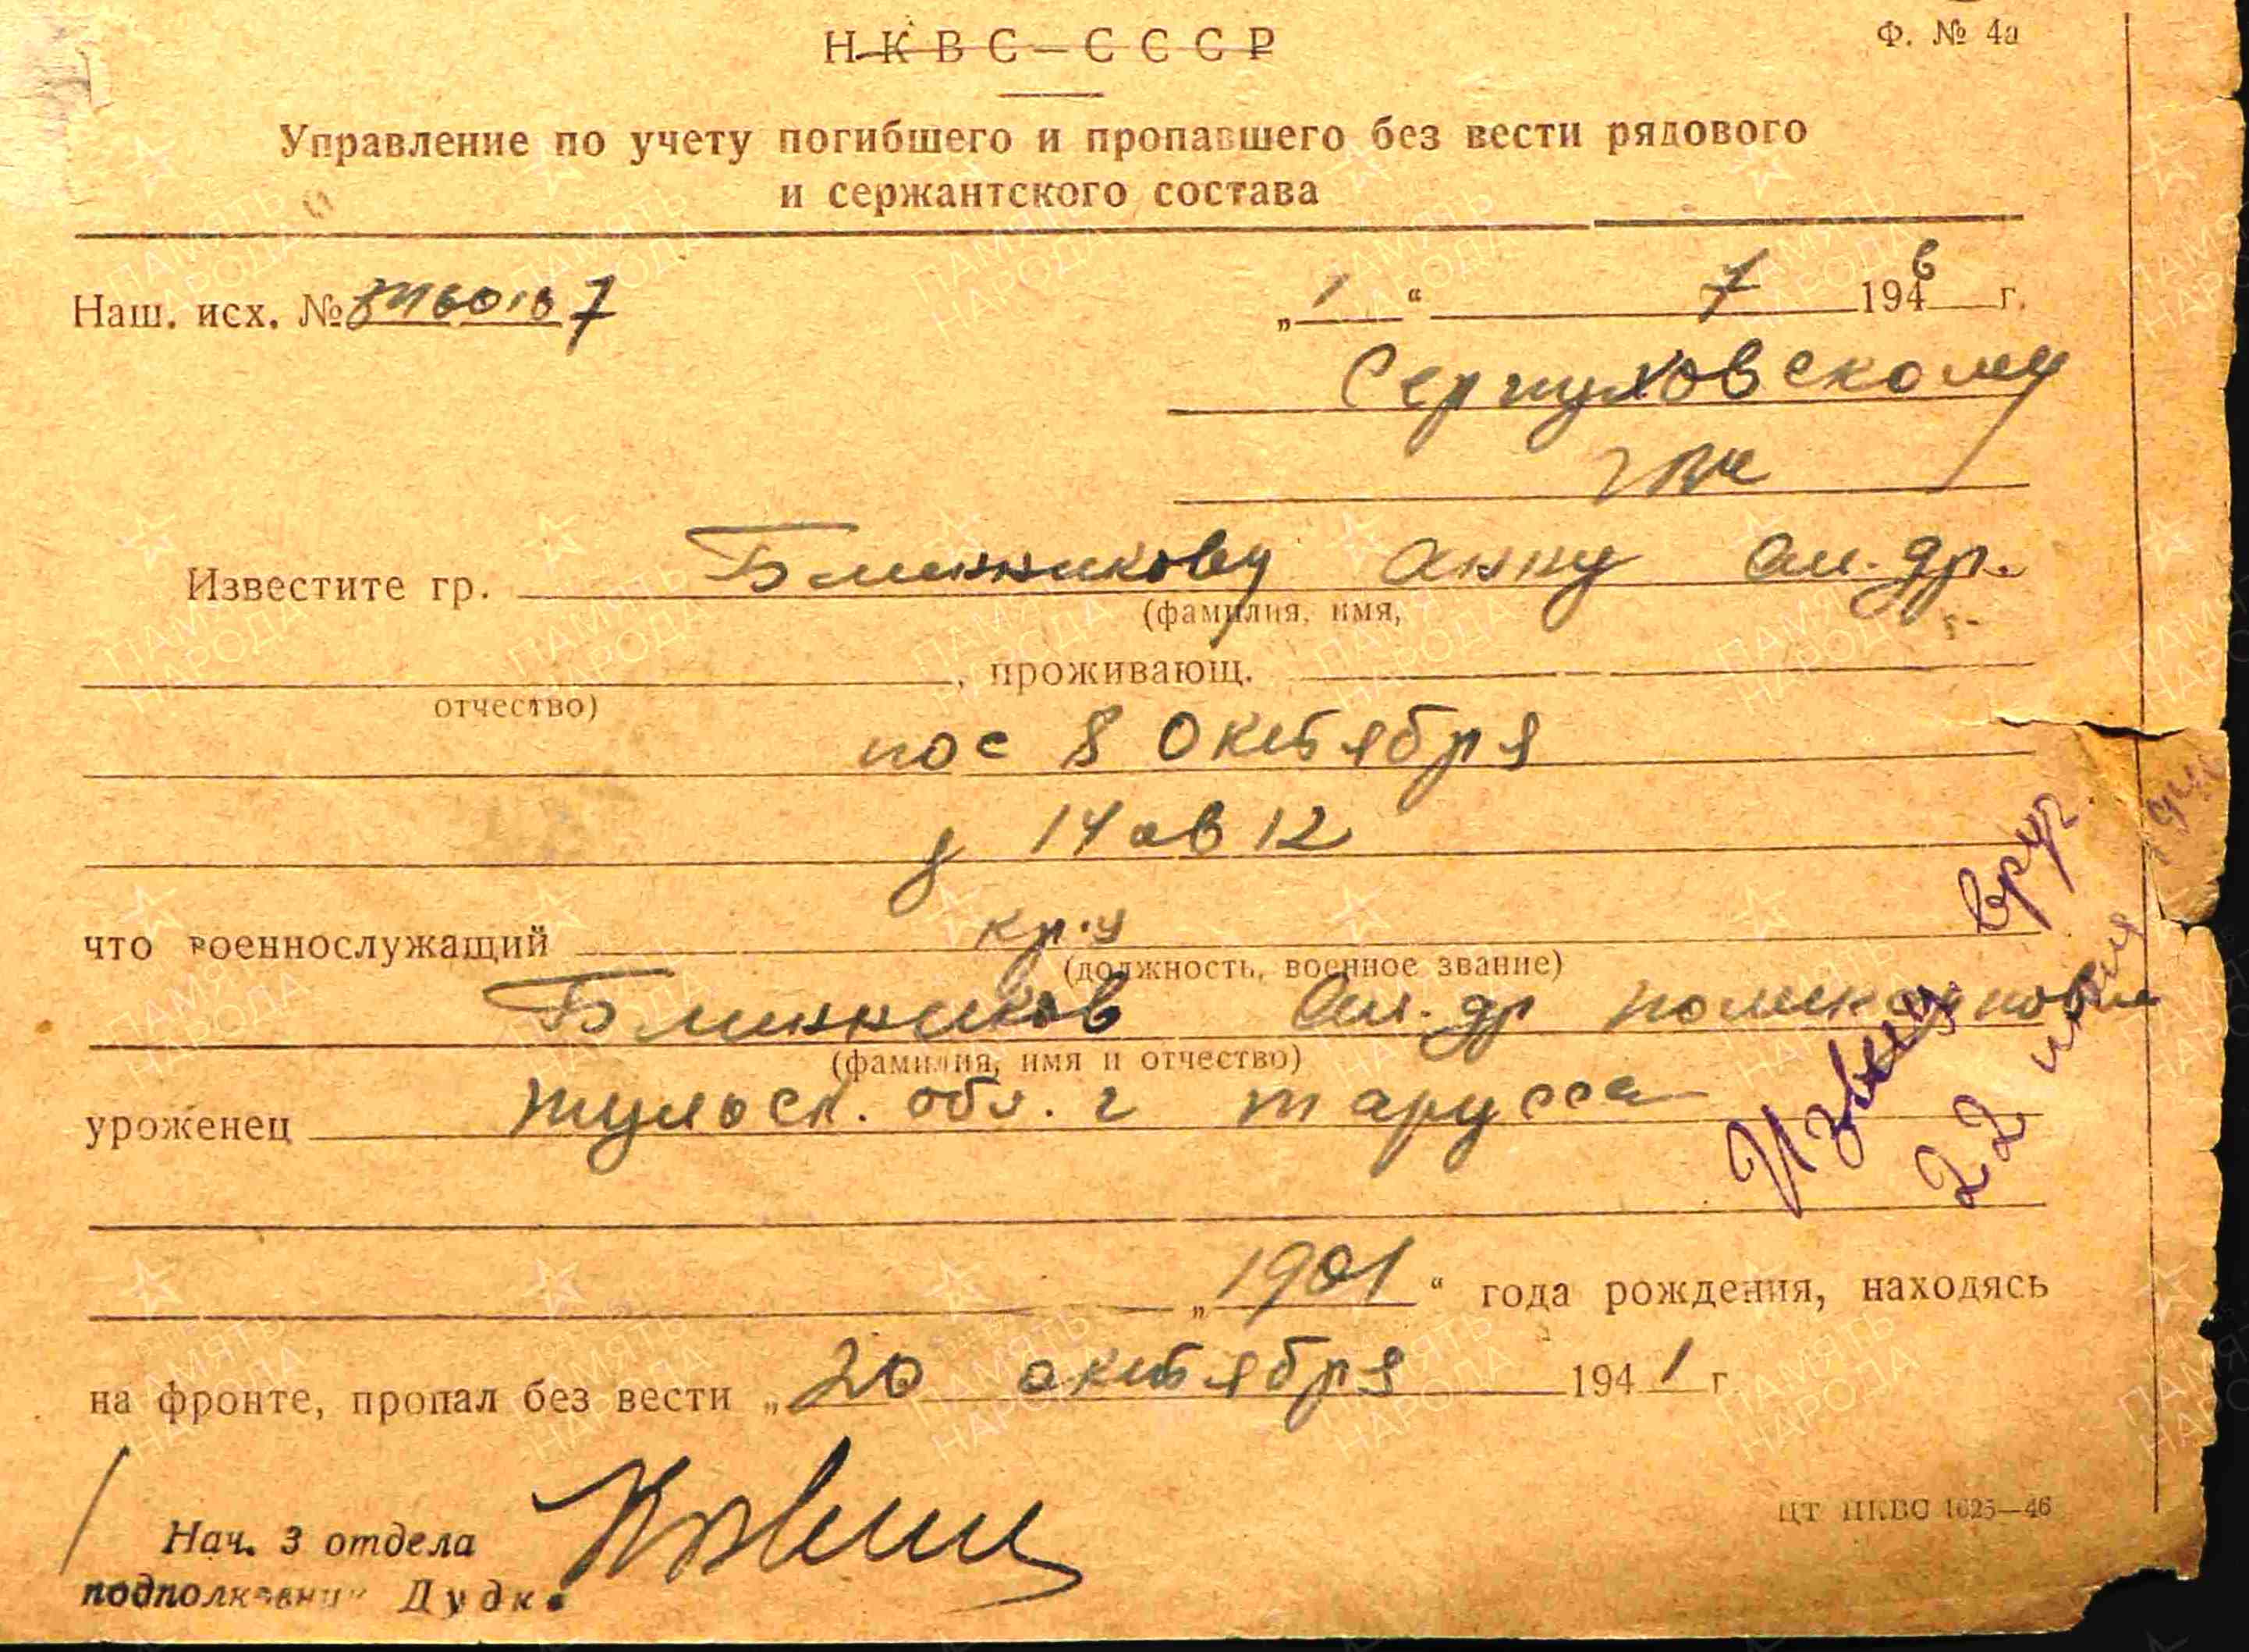 НКВС–СССР
Ф. № 4а
Управление по учету погибшего и пропавшего без вести рядового
и сержантского состава
Наш. исх. №
„1“ 7 1946 г.
Серпуховскому
гвк
Известите гр. Блинникову Анну Ал.др.
(фамилия, имя,
, проживающ.
отчество)
пос 8 Октября
д 14 кв 12
что военнослужащий кр-ц
(должность, военное звание)
Блинников Ал.др
(фамилия, имя и отчество)
уроженец Тульск. обл. г Тарусса
„1901“ года рождения, находясь
на фронте, пропал без вести „20 октября 1941 г.
Нач. 3 отдела
подполковник Дудка
ЦТ НКВС 1025—46
Извещ. вруч
22
ПАМЯТЬ НАРОДА